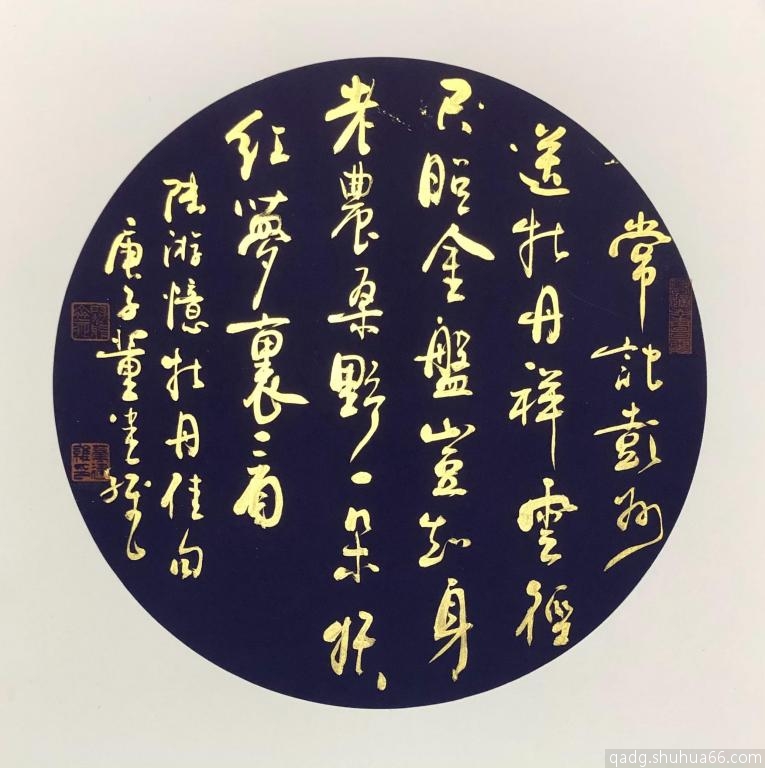 常記彭州
送牡丹祥雲徑
尺照金盤豈知身
老農桑野一朵妖
紅夢裏看
陸游憶牡丹佳句
庚子董
qadg.shuhua66.com